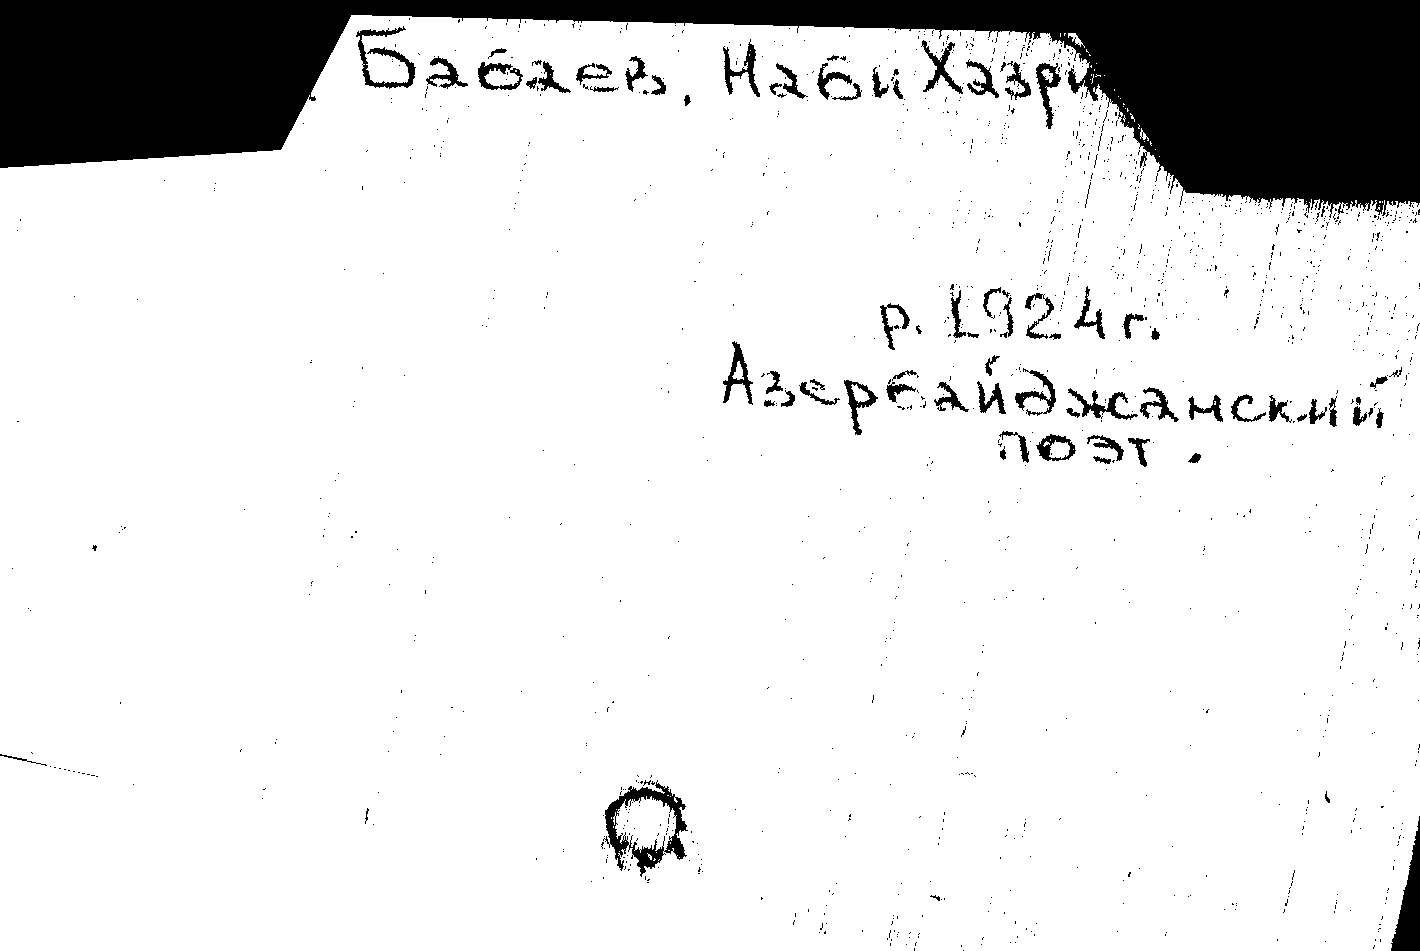 Бабаев, Наби Хазри
р. 1924 г.
Азербайджанский
поэт.